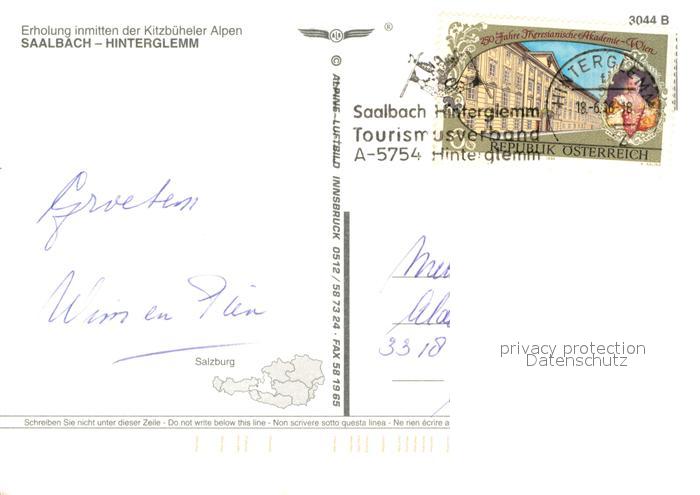 Erholung inmitten der Kitzbüheler Alpen
SAALBACH – HINTERGLEMM
®
3044 B
250 Jahre Theresianische Akademie - Wien
REPUBLIK ÖSTERREICH
HINTERGLEMM
18.-6.
Saalbach Hinterglemm
Tourismusverband
A-5754 Hinterglemm
© ALPINE-LUFTBILD INNSBRUCK 0512 / 58 73 24 · FAX 58 19 65
Groeten
Wim en Rien
3318
Salzburg
privacy protection
Datenschutz
Schreiben Sie nicht unter dieser Zeile - Do not write below this line - Non scrivere sotto questa linea - Ne rien écrire a